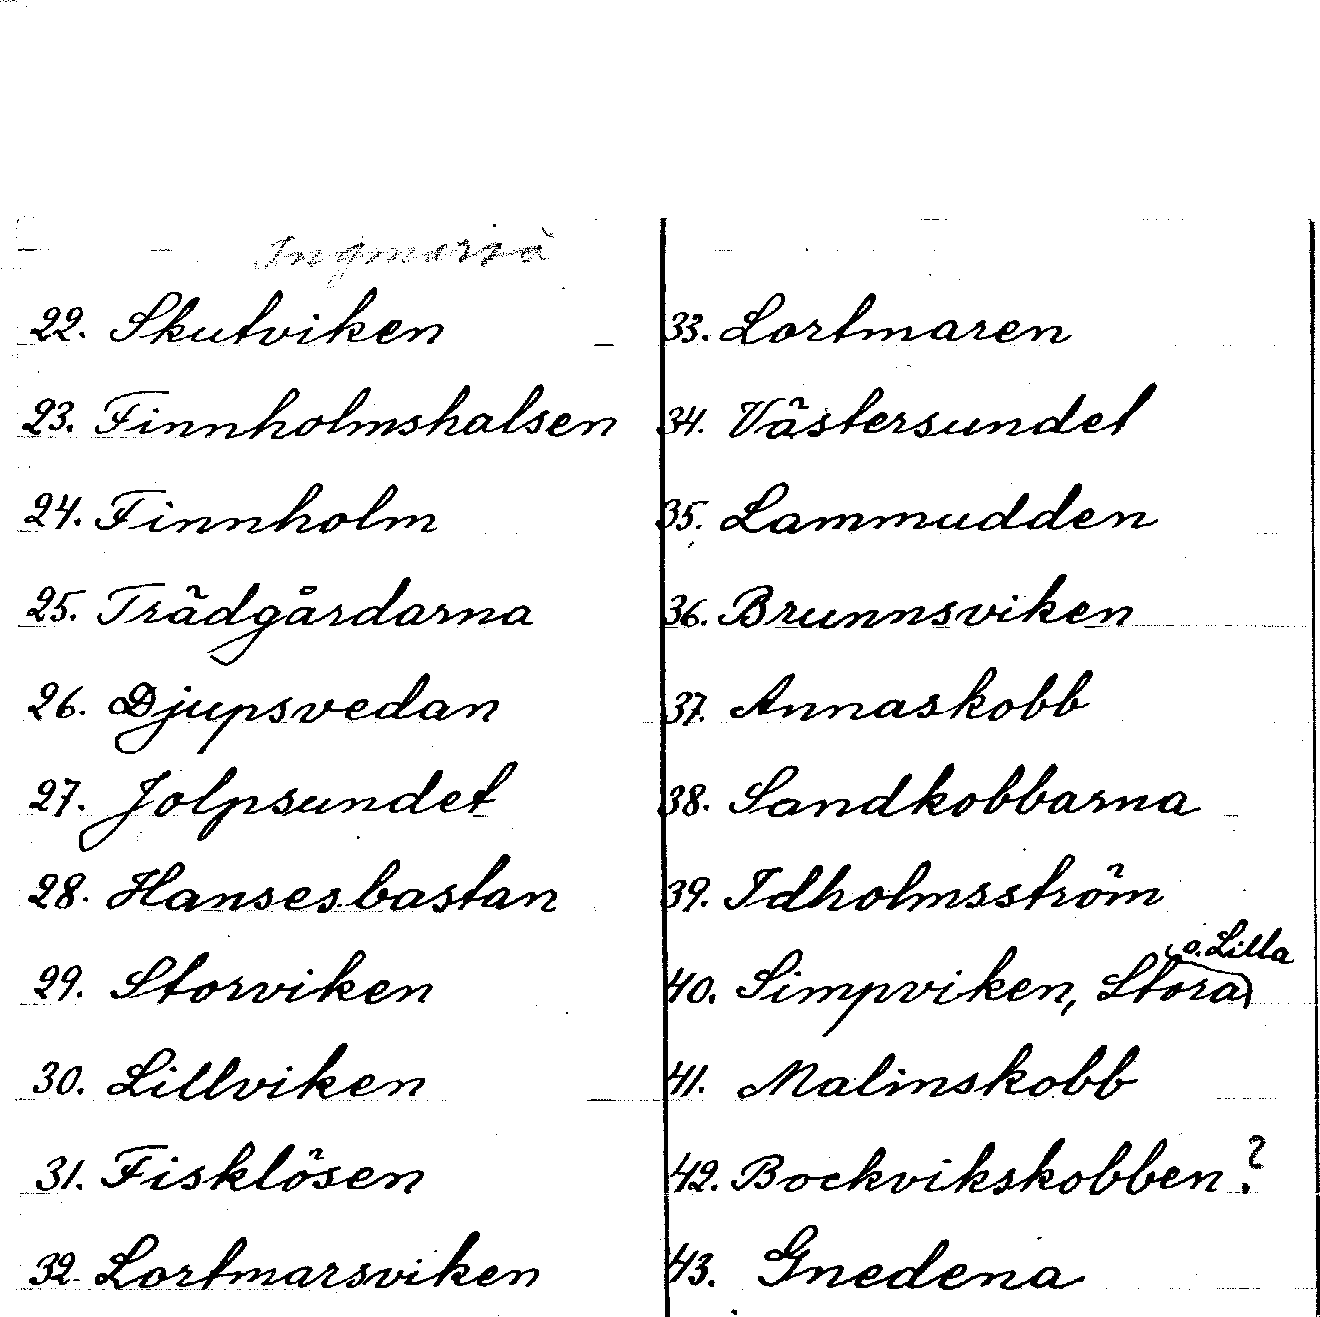 Ingmarsö
22. Skutviken
23. Finnholmshalsen
24. Finnholm
25. Trädgårdarna
26. Djupsvedan
27. Jolpsundet
28. Hansesbastan
29. Storviken
30. Lillviken
31. Fisklösen
32. Lortmarsviken
33. Lortmaren
34. Västersundet
35. Lammudden
36. Brunnsviken
37. Annaskobb
38. Sandkobbarna
39. Idholmsström
40. Simpviken, Stora o. Lilla
41. Malinskobb
42. Bockvikskobben?
43. Gnedena